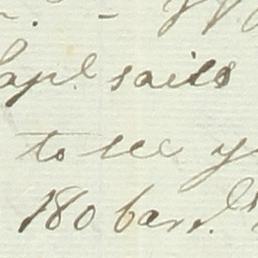 Capt sails
to see y
180 barrls